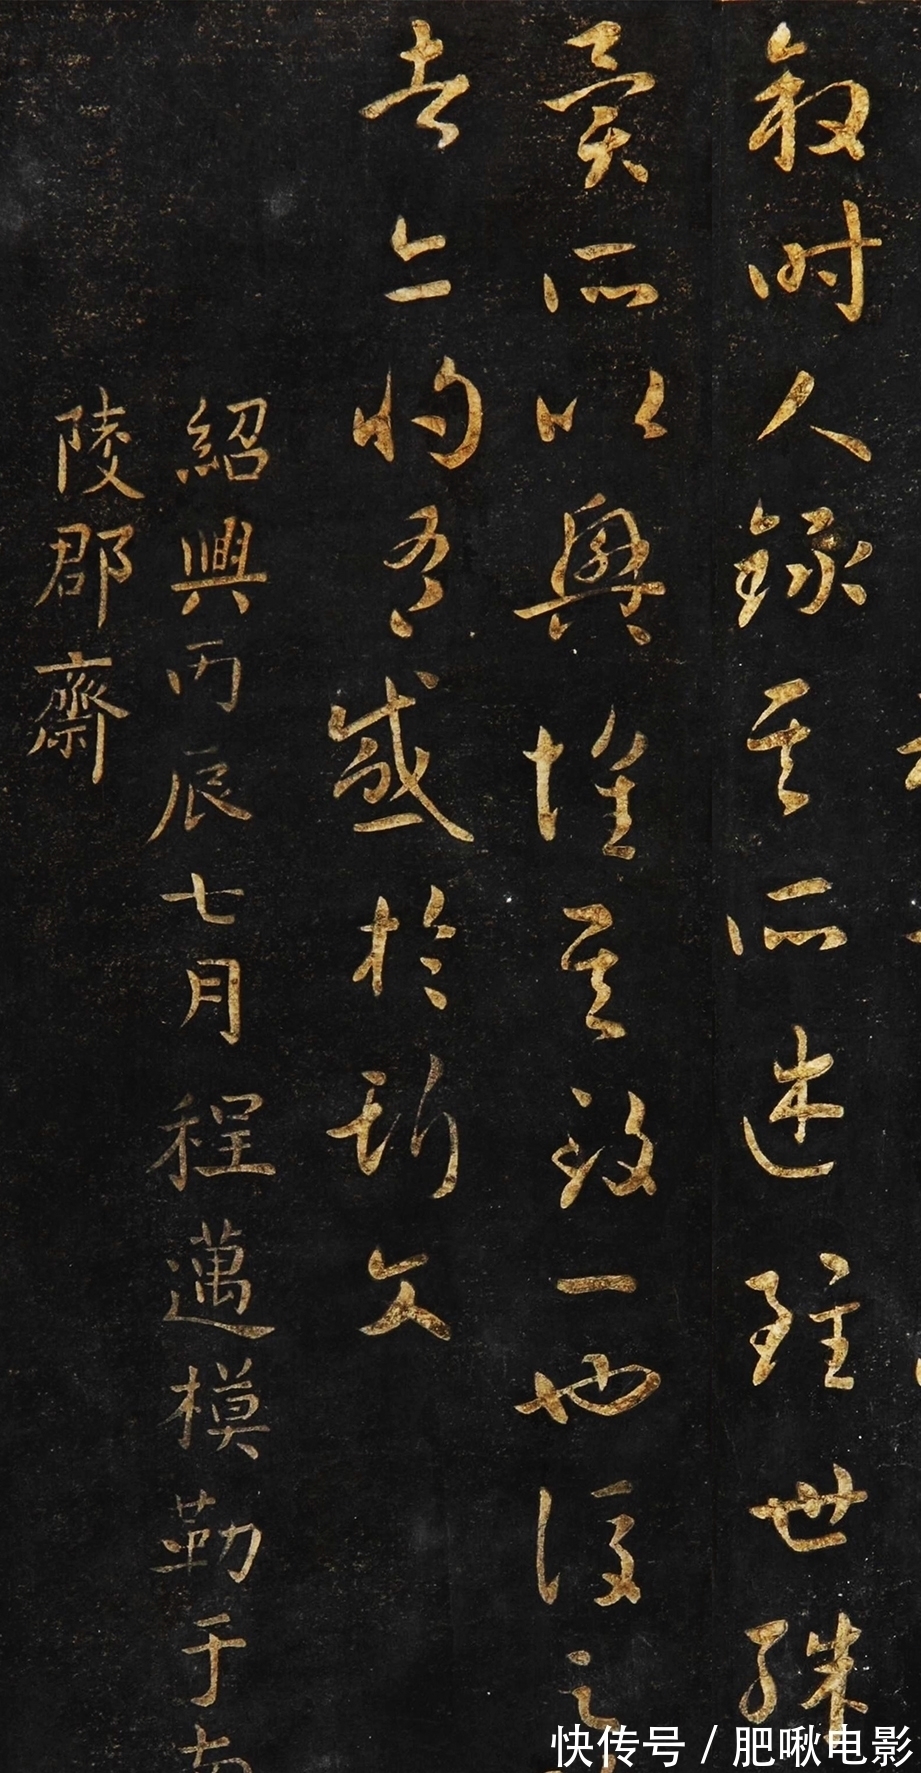 叙時人錄其所述雖世殊
異所以興懷其致一也後之
者亦將有感於斯文
紹興丙辰七月程邁模勒于南
陵郡齋
快传号 / 肥啾电影